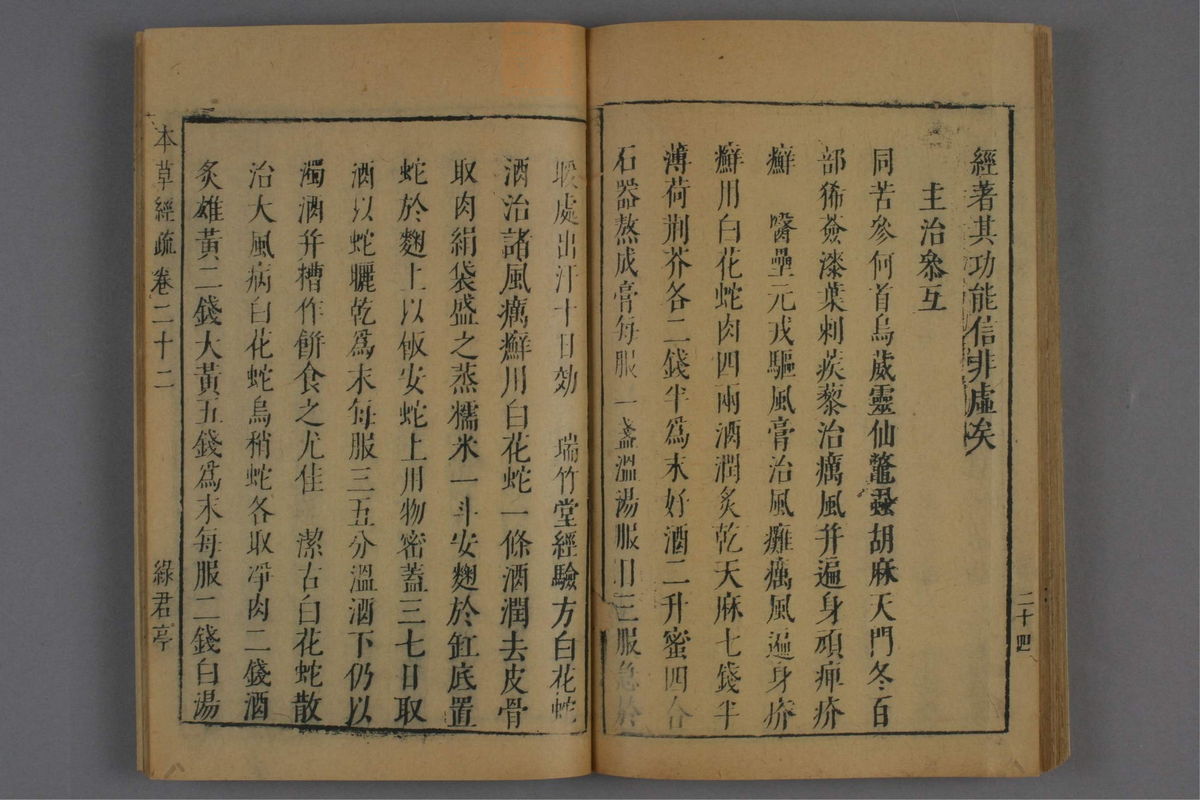 經著其功能信非虛矣
主治叅互
同苦參何首烏葳靈仙鼈蝨胡麻天門冬百
部豨薟漆葉刺蒺藜治癘風并遍身頑痺疥
癬 醫壘元戎驅風膏治風癱癘風遍身疥
癬用白花蛇肉四兩酒潤炙乾天麻七錢半
薄荷荆芥各二錢半爲末好酒二升蜜四合
石器熬成膏每服一盞溫湯服日三服急於
暖處出汗十日効 瑞竹堂經驗方白花蛇
酒治諸風癘癬用白花蛇一條酒潤去皮骨
取肉絹袋盛之蒸糯米一斗安麴於缸底置
蛇於麴上以飯安蛇上用物密蓋三七日取
酒以蛇曬乾爲末每服三五分溫酒下仍以
濁酒并糟作餅食之尤佳 潔古白花蛇散
治大風病白花蛇烏稍蛇各取凈肉二錢酒
炙雄黃二錢大黃五錢爲末每服二錢白湯
二十四
本草經疏 卷二十二 綠君亭